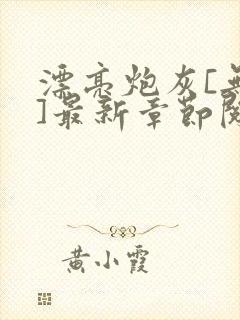 漂亮炮灰[无
]最新章节阅
黄小霞